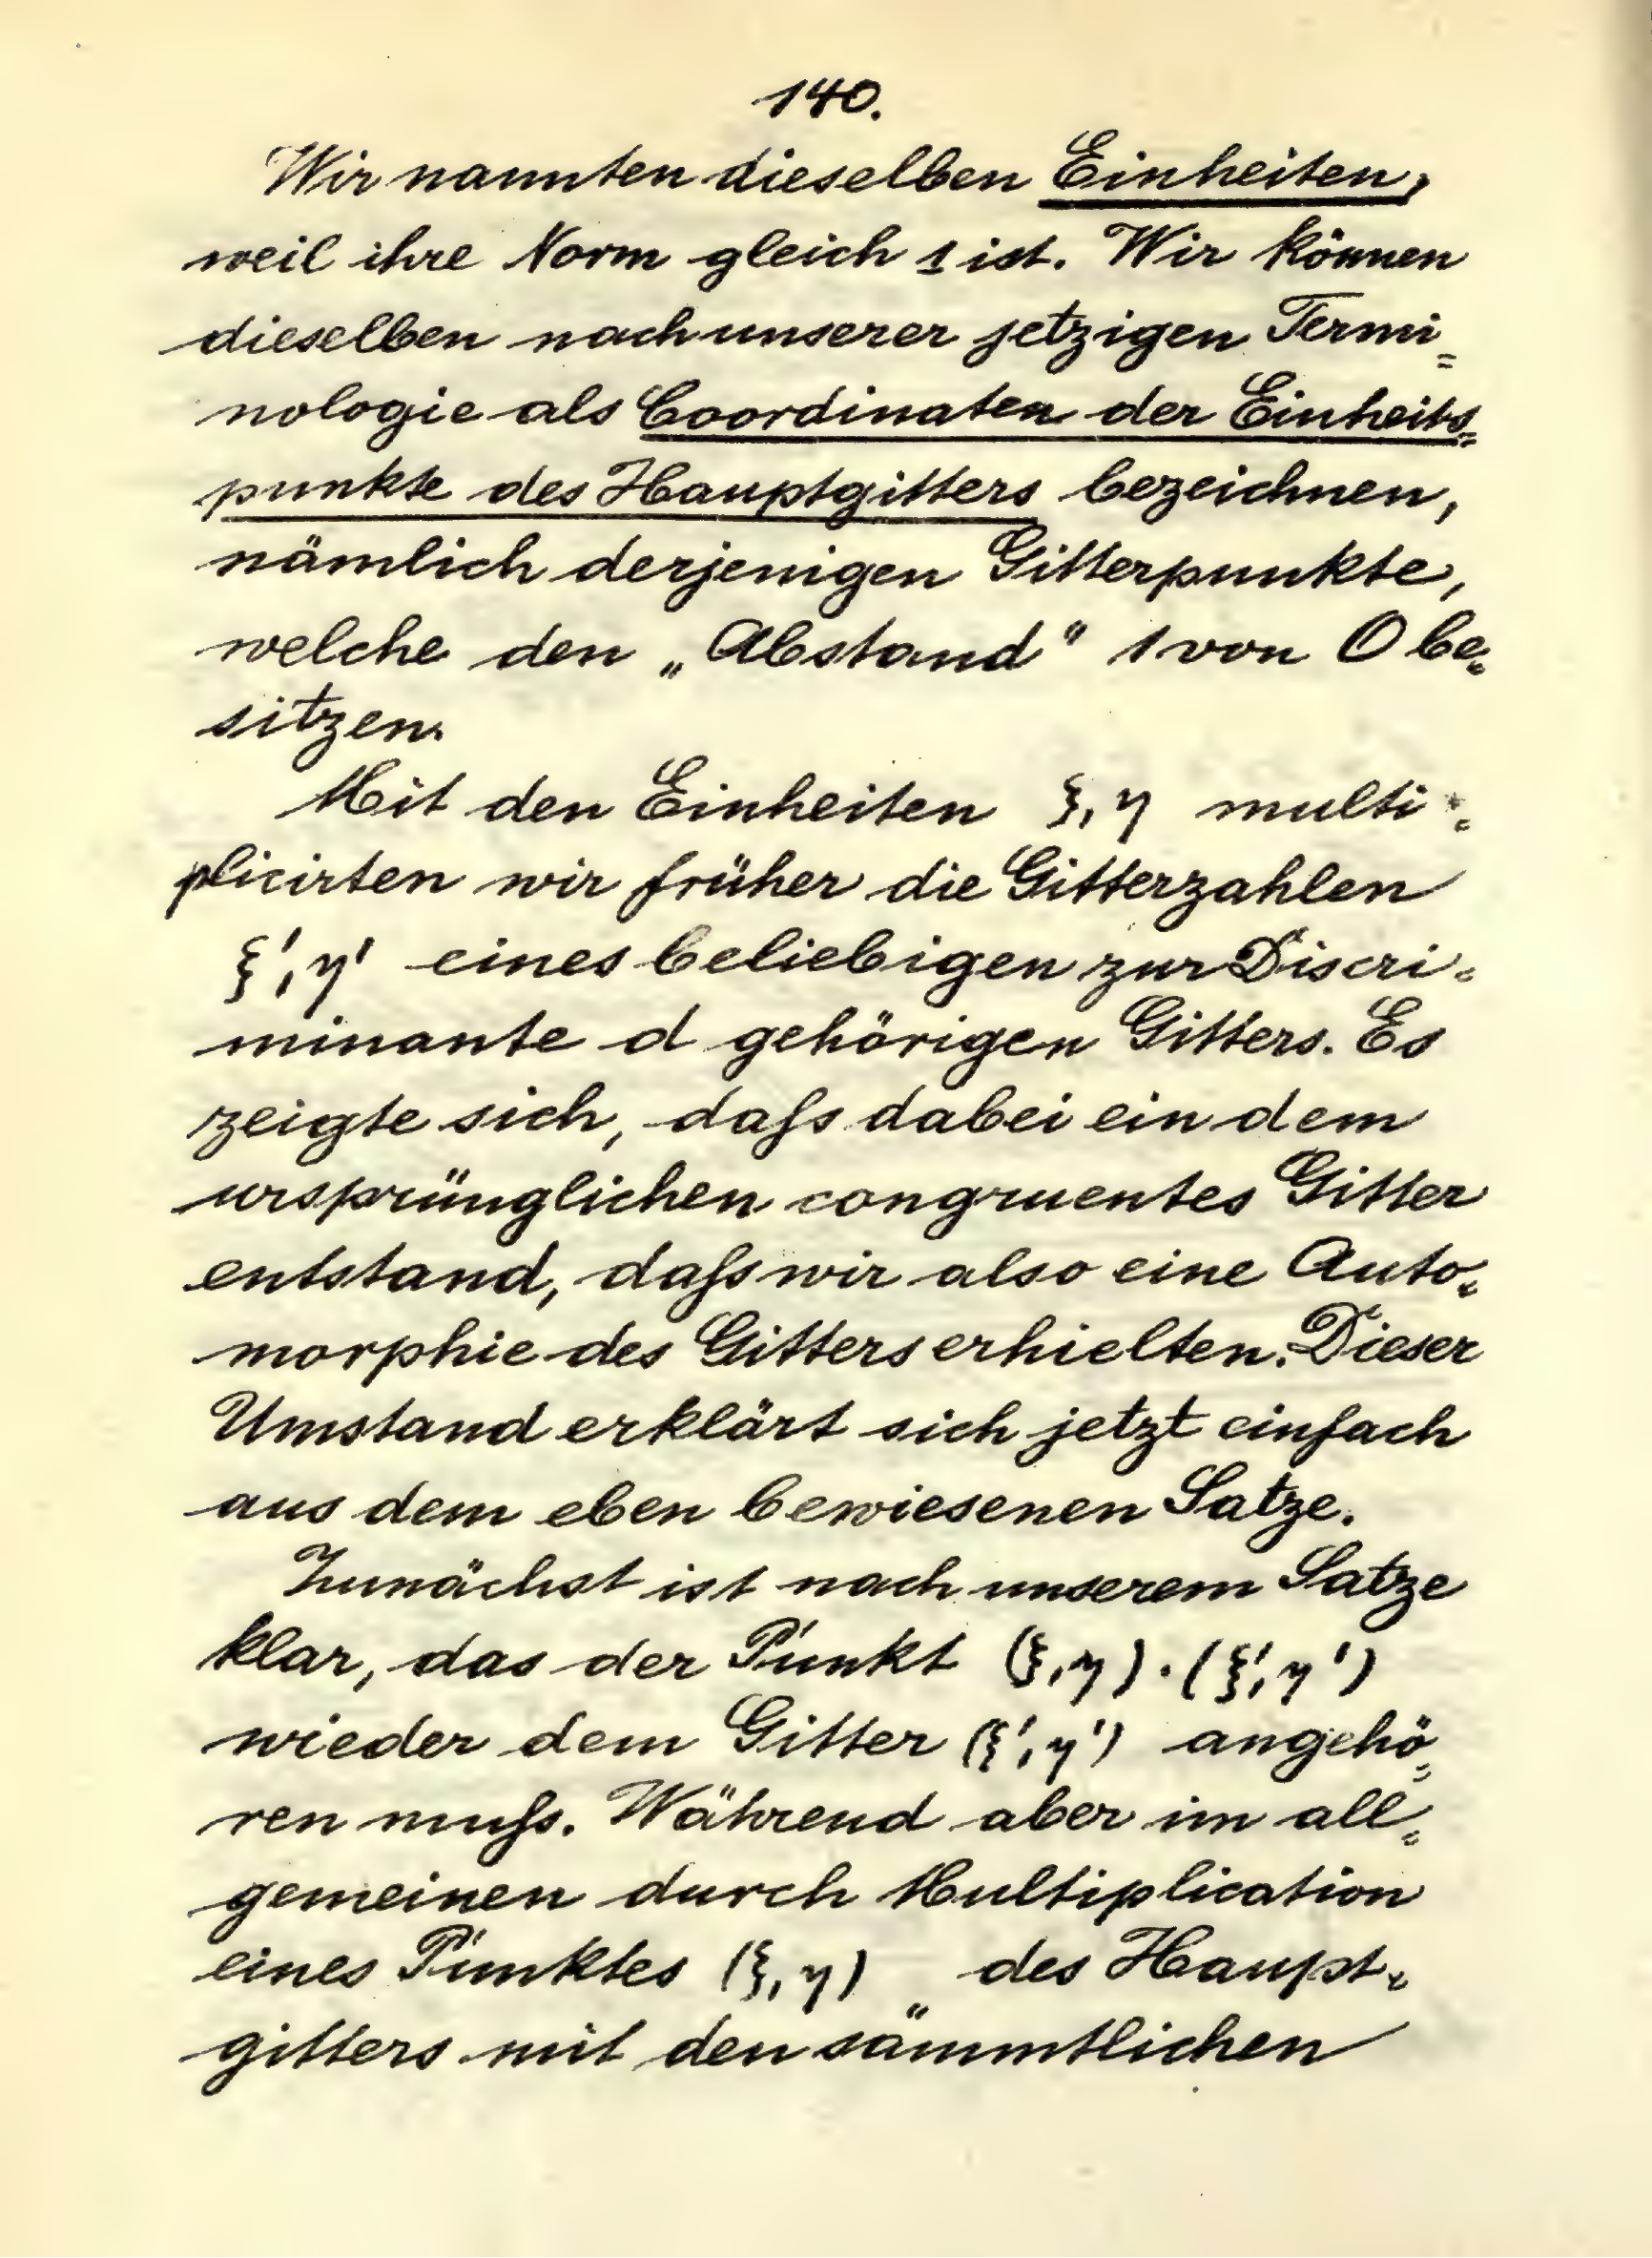 140.
Wir nannten dieselben Einheiten,
weil ihre Norm gleich 1 ist. Wir können
dieselben nach unserer jetzigen Termi=
nologie als Coordinaten der Einheits=
punkte des Hauptgitters bezeichnen,
nämlich derjenigen Gitterpunkte,
welche den „Abstand" 1 von O be=
sitzen.
Mit den Einheiten ξ, η multi=
plicirten wir früher die Gitterzahlen
ξ', η' eines beliebigen zur Discri=
minante d gehörigen Gitters. Es
zeigte sich, daſs dabei ein dem
ursprünglichen congruentes Gitter
entstand, daſs wir also eine Auto=
morphie des Gitters erhielten. Dieser
Umstand erklärt sich jetzt einfach
aus dem eben bewiesenen Satze.
Zunächst ist nach unserem Satze
klar, das der Punkt (ξ, η) · (ξ', η')
wieder dem Gitter (ξ', η') angehö=
ren muſs. Während aber im all=
gemeinen durch Multiplication
eines Punktes (ξ, η) des Haupt=
gitters mit den sämmtlichen